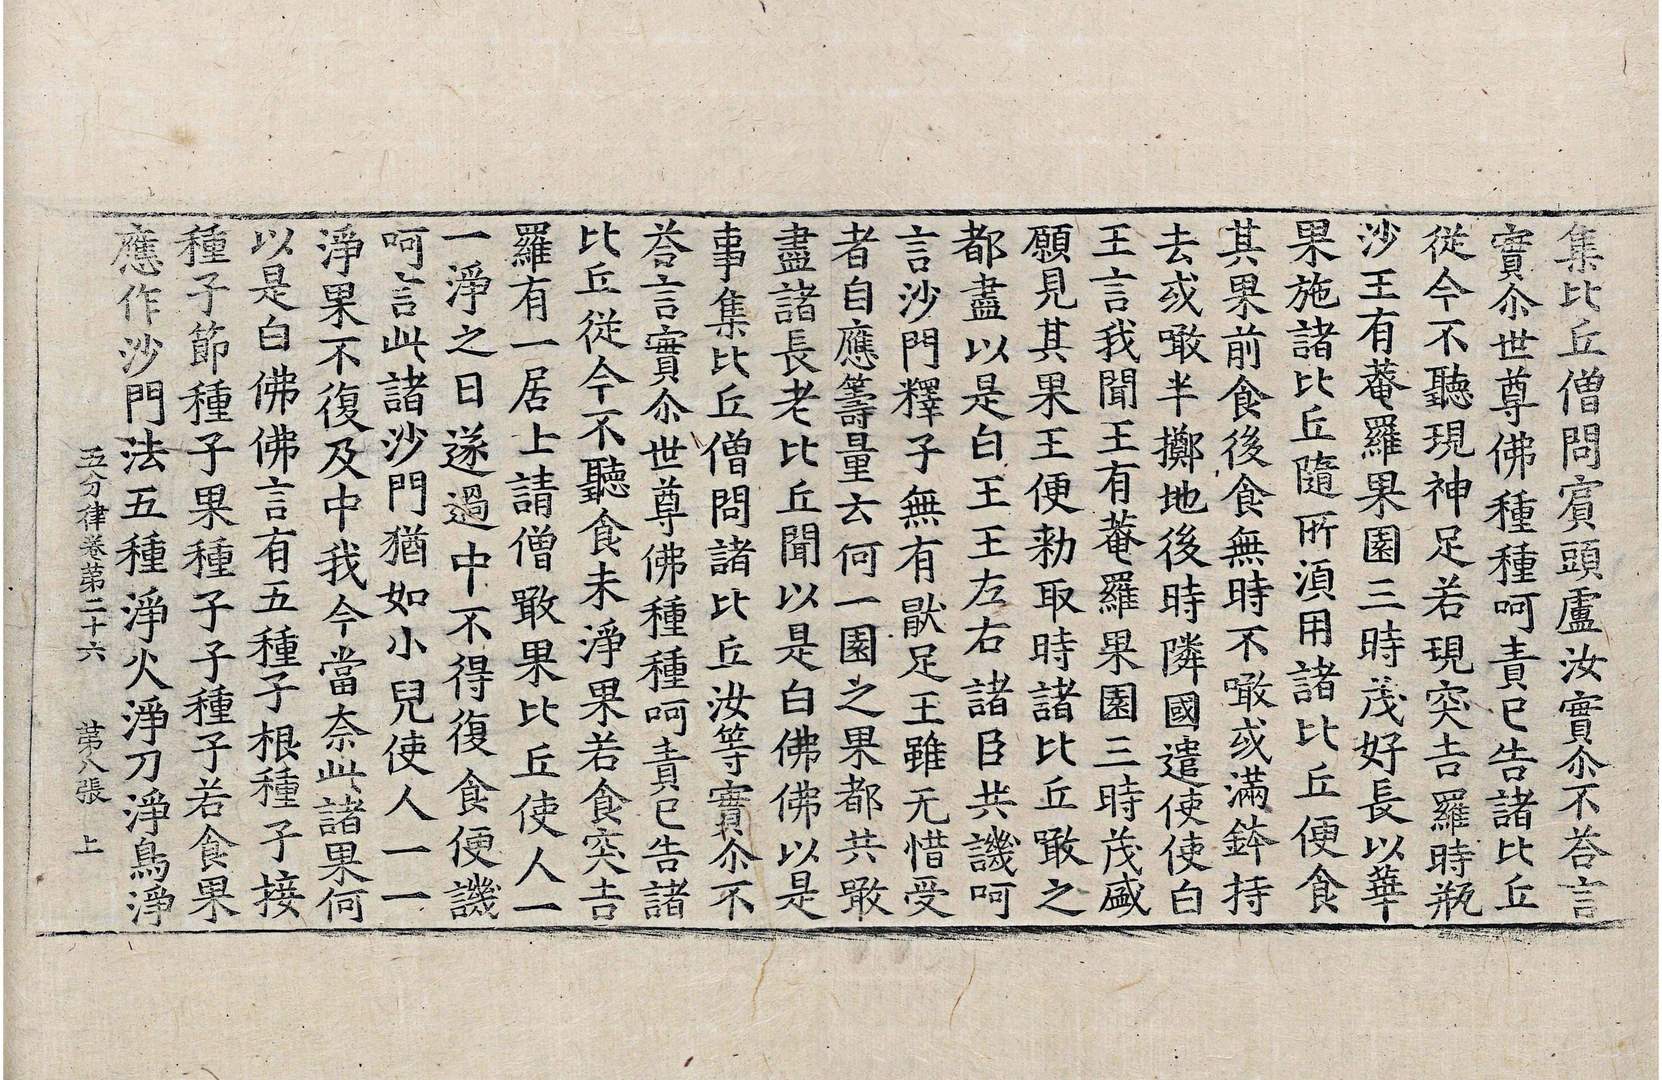 集比丘僧問賔頭盧汝實尒不荅言
實尒世尊佛種種呵責已告諸比丘
從今不聽現神足若現突吉羅時瓶
沙王有菴羅果園三時茂好長以華
果施諸比丘隨所湏用諸比丘便食
其果前食後食無時不噉或滿鉢持
去或噉半擲地後時隣國遣使使白
王言我聞王有菴羅果園三時茂盛
願見其果王便勑取時諸比丘噉之
都盡以是白王王左右諸臣共譏呵
言沙門釋子無有猒足王雖无惜受
者自應籌量云何一園之果都共噉
盡諸長老比丘聞以是白佛佛以是
事集比丘僧問諸比丘汝等實尒不
荅言實尒世尊佛種種呵責已告諸
比丘從今不聽食未淨果若食突吉
羅有一居士請僧噉果比丘使人一
一淨之日遂過中不得復食便譏
呵言此諸沙門猶如小兒使人一一
淨果不復及中我今當奈此諸果何
以是白佛佛言有五種子根種子接
種子節種子果種子子種子若食果
應作沙門法五種淨火淨刀淨鳥淨
五分律卷第二十六 第八張 上